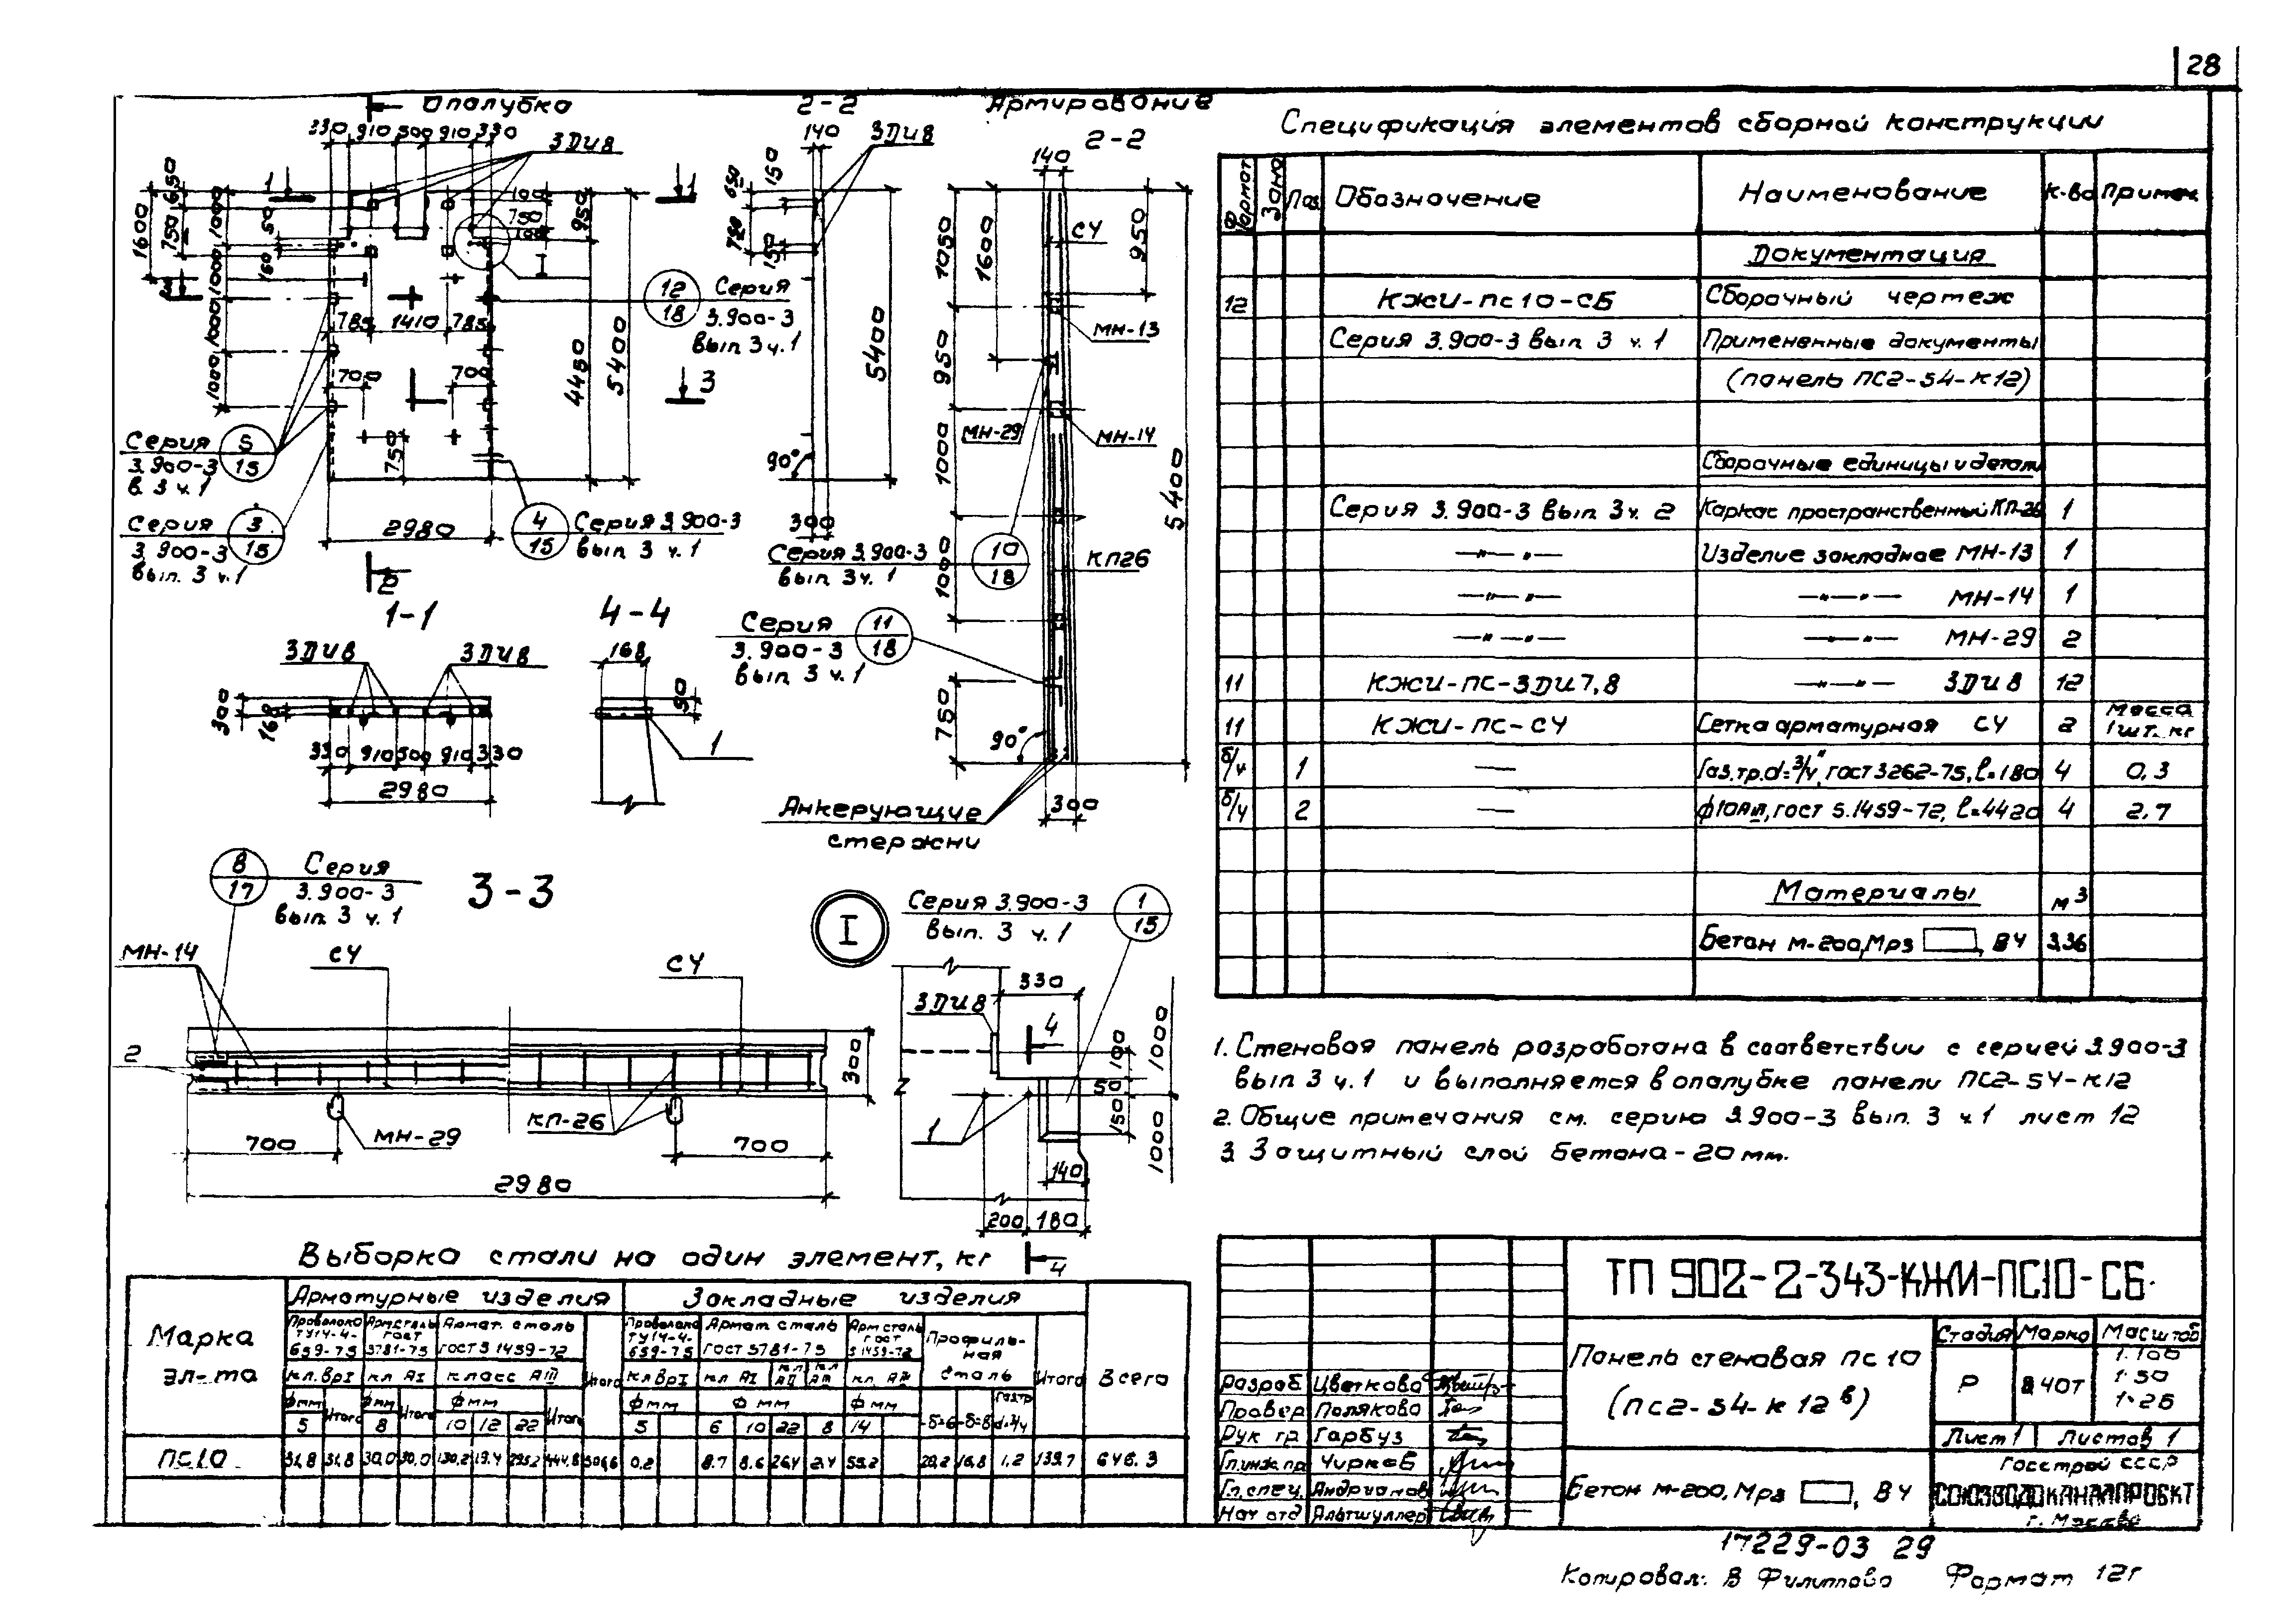 28
Опалубка
2-2
Армирование
2-2
330 910 500 910 330
3ДИ8
140
3ДИ8
140
1600
650
750
1000
1000
1000
1000
50
160
100
750
100
950
4450
5400
785 1410 785
700
700
750
2980
1
1
3
2
12
18
Серия
3.900-3
вып 3 ч.1
Серия
5
15
3.900-3
в. 3 ч. 1
Серия
3
15
3.900-3
вып. 3 ч. 1
4
15
Серия 3.900-3
вып 3 ч. 1
650
150
750
150
5400
90°
300
1050
1600
950
СЧ
МН-13
950
МН-29
МН-14
1000
5400
Серия 3.900-3
вып 3 ч. 1
10
18
1000
КП26
Серия
3.900-3
вып 3 ч. 1
11
18
750
90°
300
Анкерующие
стержни
1-1
3ДИ8
3ДИ8
300
168
330 910 500 910 330
2980
4-4
168
90
1
8
17
Серия
3.900-3
вып 3 ч. 1
3-3
МН-14
СЧ
СЧ
2
300
МН-29
КП-26
700
700
2980
I
Серия 3.900-3
вып. 3 ч. 1
1
15
330
3ДИ8
4
100
1000
50
150
1000
1
140
200 180
4
Спецификация элементов сборной конструкции
Формат
Зона
Поз
Обозначение
Наименование
К-во
Примеч.
Документация
12 КЖИ-ПС10-СБ Сборочный чертеж
Серия 3.900-3 вып 3 ч. 1 Примененные документы
(панель ПС2-54-К12)
Сборочные единицы и детали
Серия 3.900-3 вып 3 ч. 2 Каркас пространственный КП-26 1
—"—"— Изделие закладное МН-13 1
—"—"— —"—"— МН-14 1
—"—"— —"—"— МН-29 2
11 КЖИ-ПС-3ДИ7,8 —"—"— 3ДИ8 12
11 КЖИ-ПС-СЧ Сетка арматурная СЧ 2 Масса 1шт. кг
б/ч 1 — Газ.тр.d=3/4", гост 3262-75, ℓ=180 4 0,3
б/ч 2 — ф10АIII, гост 5.1459-72, ℓ=4420 4 2,7
Материалы м³
Бетон М-200, Мрз , В4 3.36
1. Стеновая панель разработана в соответствии с серией 3.900-3
вып 3 ч. 1 и выполняется в опалубке панели ПС2-54-К12
2. Общие примечания см. серию 3.900-3 вып. 3 ч. 1 лист 12
3. Защитный слой бетона - 20 мм.
Выборка стали на один элемент, кг
Марка
эл-та
Арматурные изделия
Закладные изделия
Всего
Проволока
ТУ14-4-
659-75
Арм сталь
гост
5781-75
Армат. сталь
гост 5 1459-72
Итого
Проволока
ТУ14-4-
659-75
Армат сталь
гост 5781-75
Арм сталь
гост
5 1459-72
Профиль-
ная
сталь
Итого
кл. ВрI
кл АI
класс АIII
кл ВрI
кл АI
кл АII
кл АIII
кл. АIII
ф мм
Итого
ф мм
Итого
ф мм
Итого
ф мм
ф мм
ф мм
5 8 10 12 22 5 6 10 22 8 14 -δ=6 -δ=8 Газ.тр d=3/4
ПС10 31,8 31,8 30,0 30,0 130,2 19.4 295.2 444,8 506,6 0,2 8.7 8.6 26,4 2.4 55.2 20,2 16,8 1,2 139,7 646.3
ТП 902-2-343-КЖИ-ПС10-СБ
Панель стеновая ПС10
(ПС2-54-К12 в)
Стадия Марка Масштаб
Р 8.40т
1:100
1:50
1:25
Лист 1 Листов 1
Разраб Цветкова
Провер Полякова
Рук гр Гарбуз
Гл.инж.пр Чирков
Гл.спец. Андрианов
Нач отд Альтшуллер
Бетон М-200, Мрз , В4
Госстрой СССР
СОЮЗВОДОКАНАЛПРОЕКТ
г. Москва
17229-03 29
Копировал: В Филиппова Формат 12г